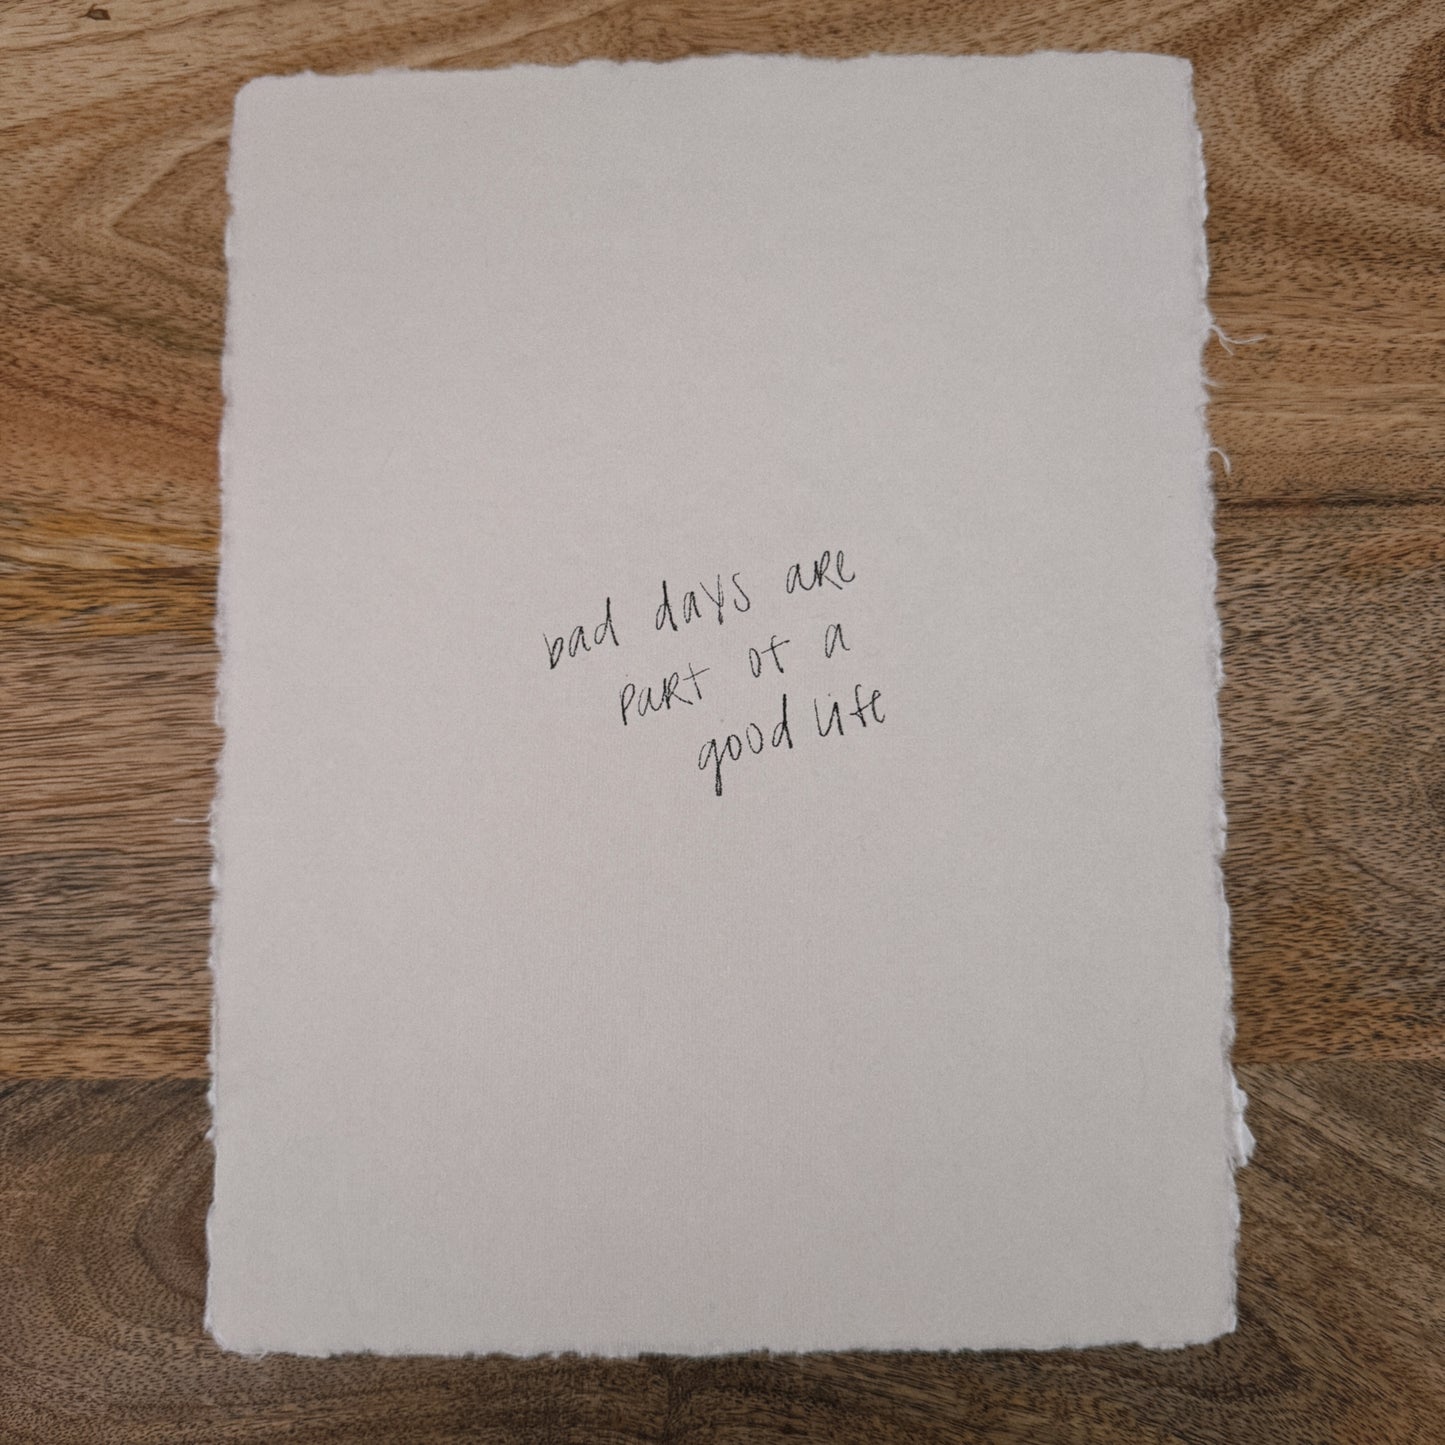 bad days are
part of a
good life